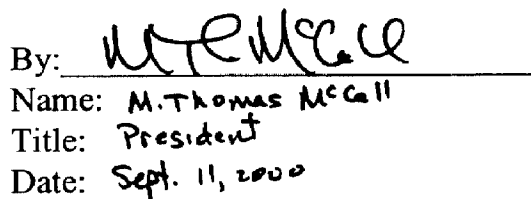 By: MTC McCall
Name: M. Thomas McCall
Title: President
Date: Sept. 11, 2000